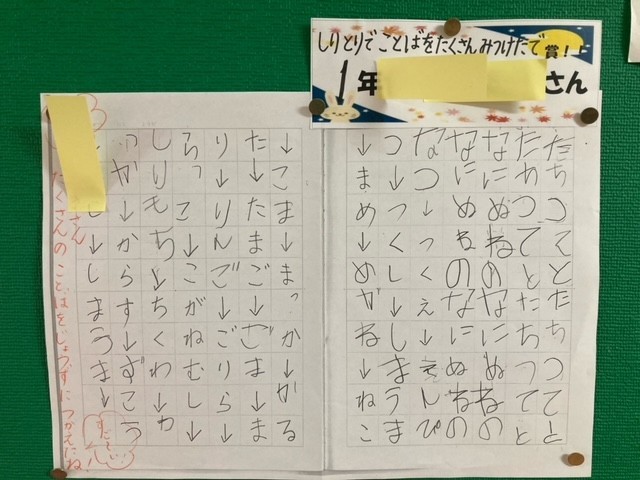 しりとりでことばをたくさんみつけたで賞!上
1年 さん
たちつてとたちつてと
たちつてとたちつてと
なにぬねのなにぬねの
なにぬねのなにぬねの
なつ↓つくえ↓えんぴ
つ↓つくし↓しまうま
↓まめ↓めがね↓ねこ
↓こま↓まっか↓かる
た↓たまご↓ごま↓ま
り↓りんご↓ごりら↓
らっこ↓こがねむし↓
しりもち↓ちくわ↓わ
っか↓からす↓ずこう
し↓しまうま↓
さん
たくさんのことばをじょうずにつかえたね